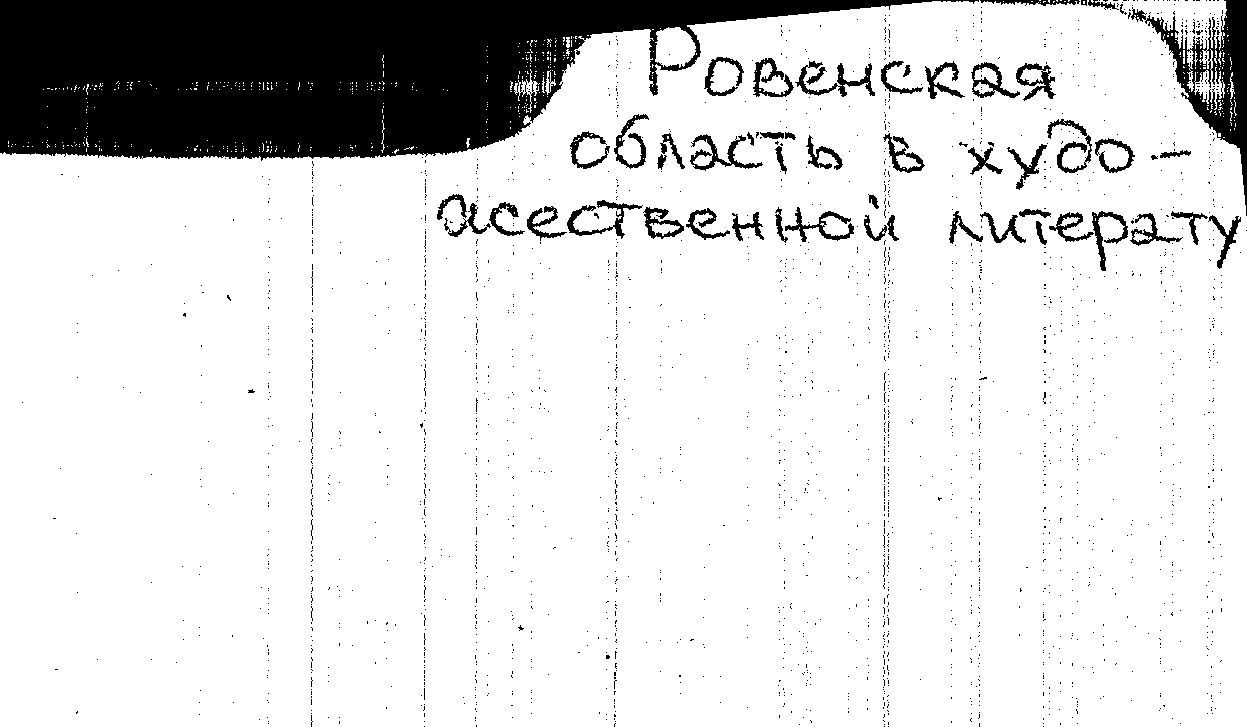 Ровенская
область в худо-
жественной литерату